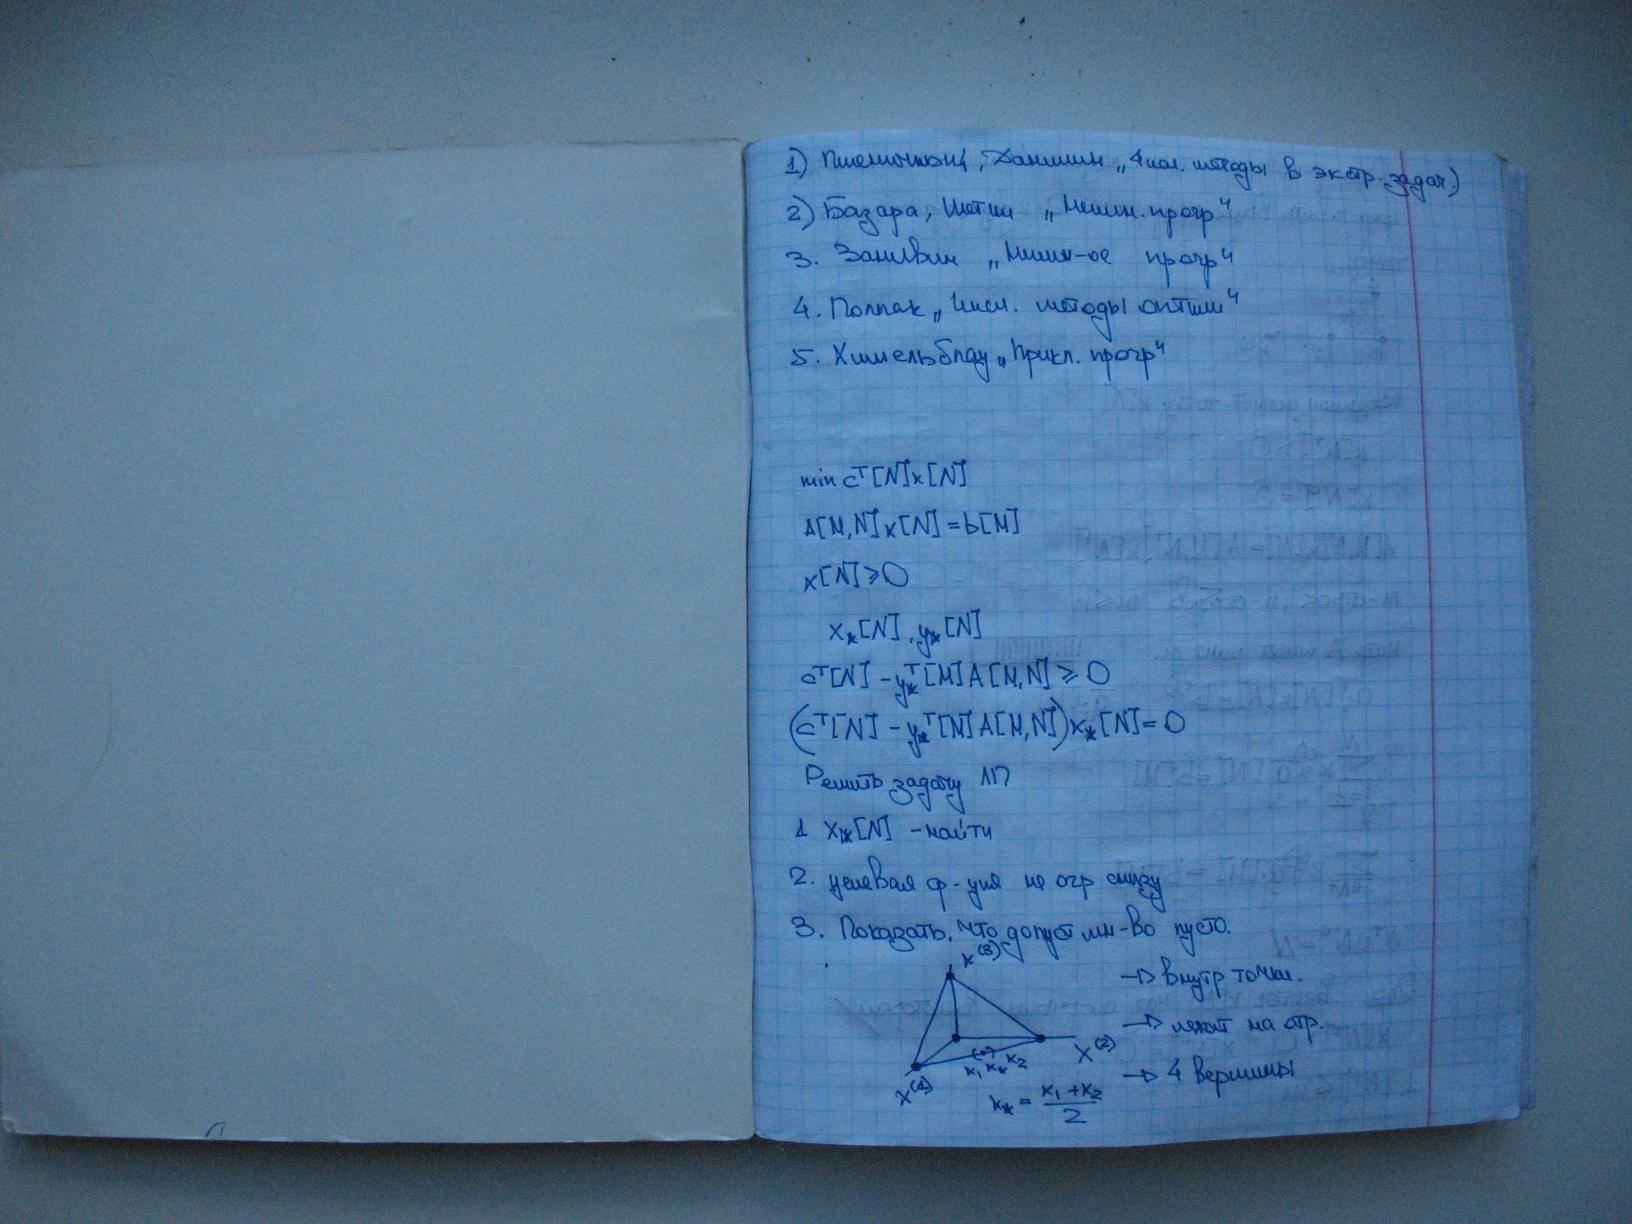 1) Пшеничный, Данилин „Числ. методы в экстр. задач.)
2) Базара, Шетти „Нелин. прогр“
3. Зангвил „Нелин-ое прогр“
4. Поллак „Числ. методы оптим“
5. Химельблау „Прикл. прогр“
min cᵀ[N]x[N]
A[M,N]x[N]=b[M]
x[N]⩾0
x*[N], y*[N]
cᵀ[N] - y*ᵀ[M]A[M,N] ⩾ 0
(cᵀ[N] - y*ᵀ[M]A[M,N])x*[N] = 0
Решить задачу ЛП
1 x*[N] - найти
2. целевая ф-ция не огр снизу
3. Показать, что допуст мн-во пусто.
x⁽³⁾
→ внутр точки.
→ лежит на отр.
x⁽²⁾
x₁ x* x₂
→ 4 вершины
x⁽¹⁾
x* = (x₁+x₂)/2